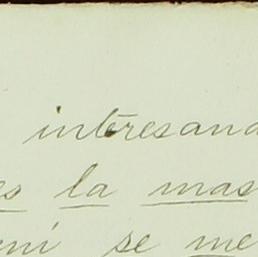 intéresand
es la mas
mi se me